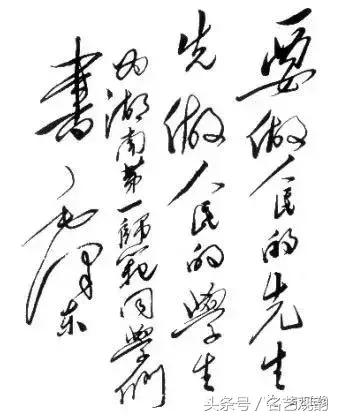 要做人民的先生
先做人民的學生
为湖南第一師範同學們
書
毛澤东
头条号/名艺观韵